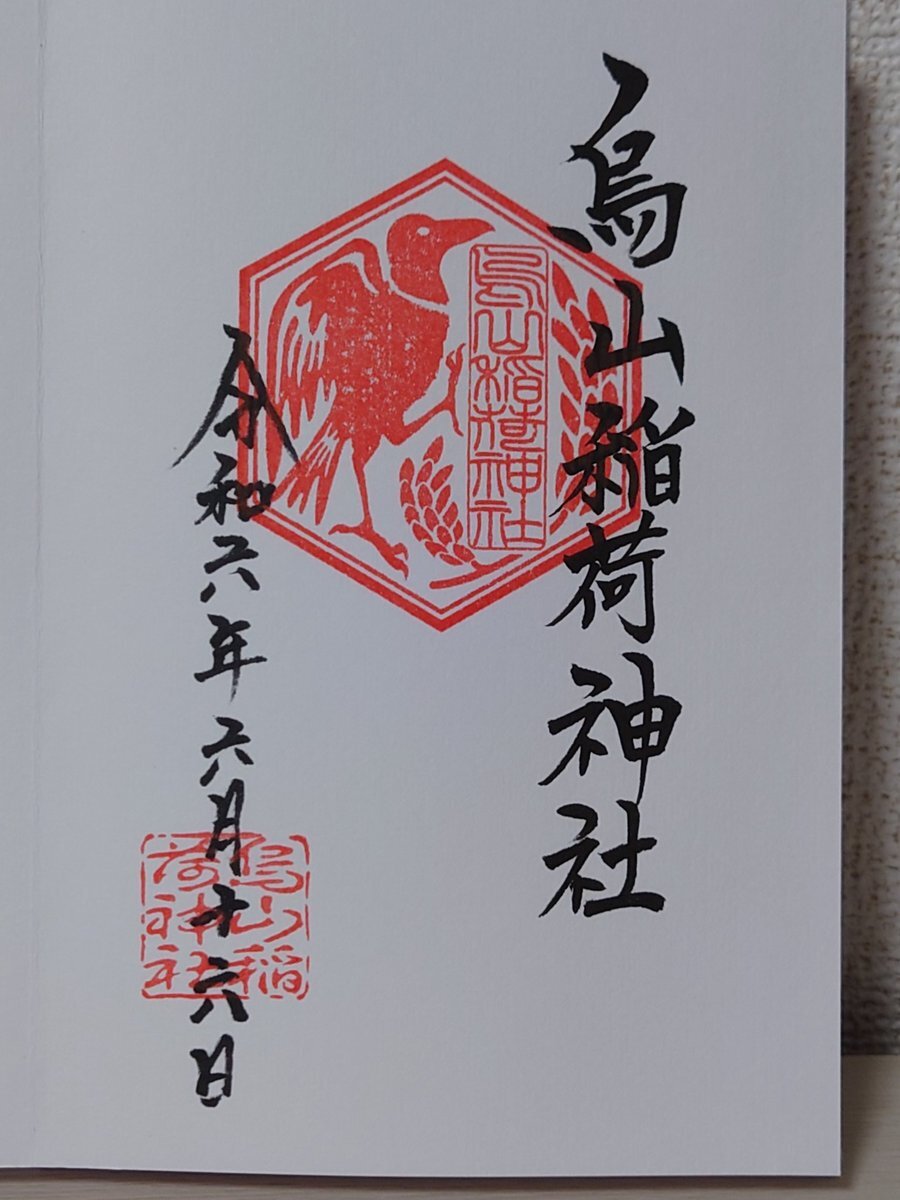 烏山稲荷神社
烏山稲荷神社
令和六年六月十六日
烏山稲荷神社